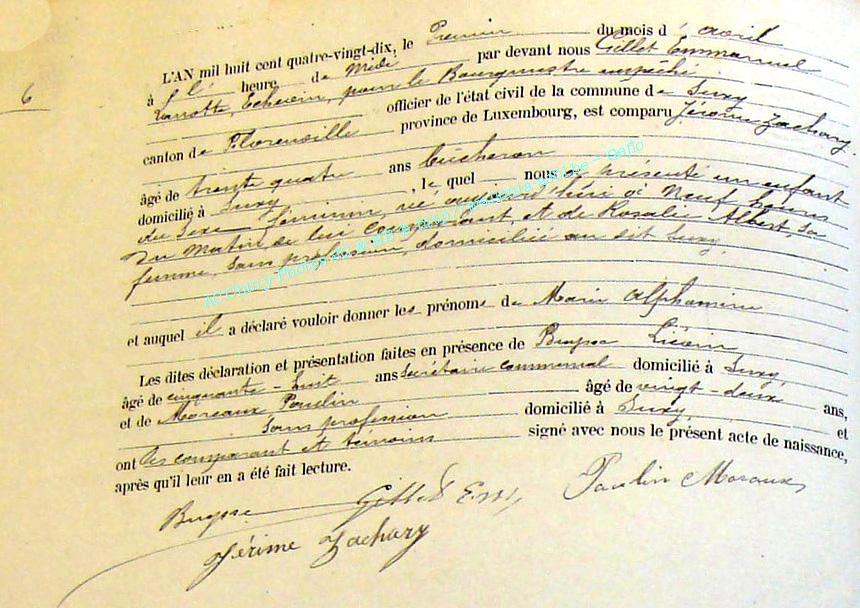 6
L'AN mil huit cent quatre-vingt-dix, le Premier du mois d'avril
à l' heure de Midi par devant nous Gillet Emmanuel
Echevin, pour le Bourgmestre empêché
officier de l'état civil de la commune de Suxy
canton de Florenville province de Luxembourg, est comparu Jérôme Zachary
âgé de trente quatre ans Bûcheron
domicilié à Suxy, lequel nous a présenté un enfant
du Sexe féminin, né aujourd'hui à Neuf heures
Du Matin de lui Comparant et de Rosalie Albert Sa
femme, Sans profession, domiciliée au dit Suxy,
et auquel il a déclaré vouloir donner les prénoms de Marie Alphonsine
Les dites déclaration et présentation faites en présence de Buysse
âgé de cinquante-huit ans Secrétaire communal domicilié à Suxy,
et de Moreaux Paulin âgé de vingt-deux ans,
Sans profession domicilié à Suxy, et
ont les comparant et témoins signé avec nous le présent acte de naissance,
après qu'il leur en a été fait lecture.
Buysse Gillet Em, Paulin Moraux
Jérime Zachary